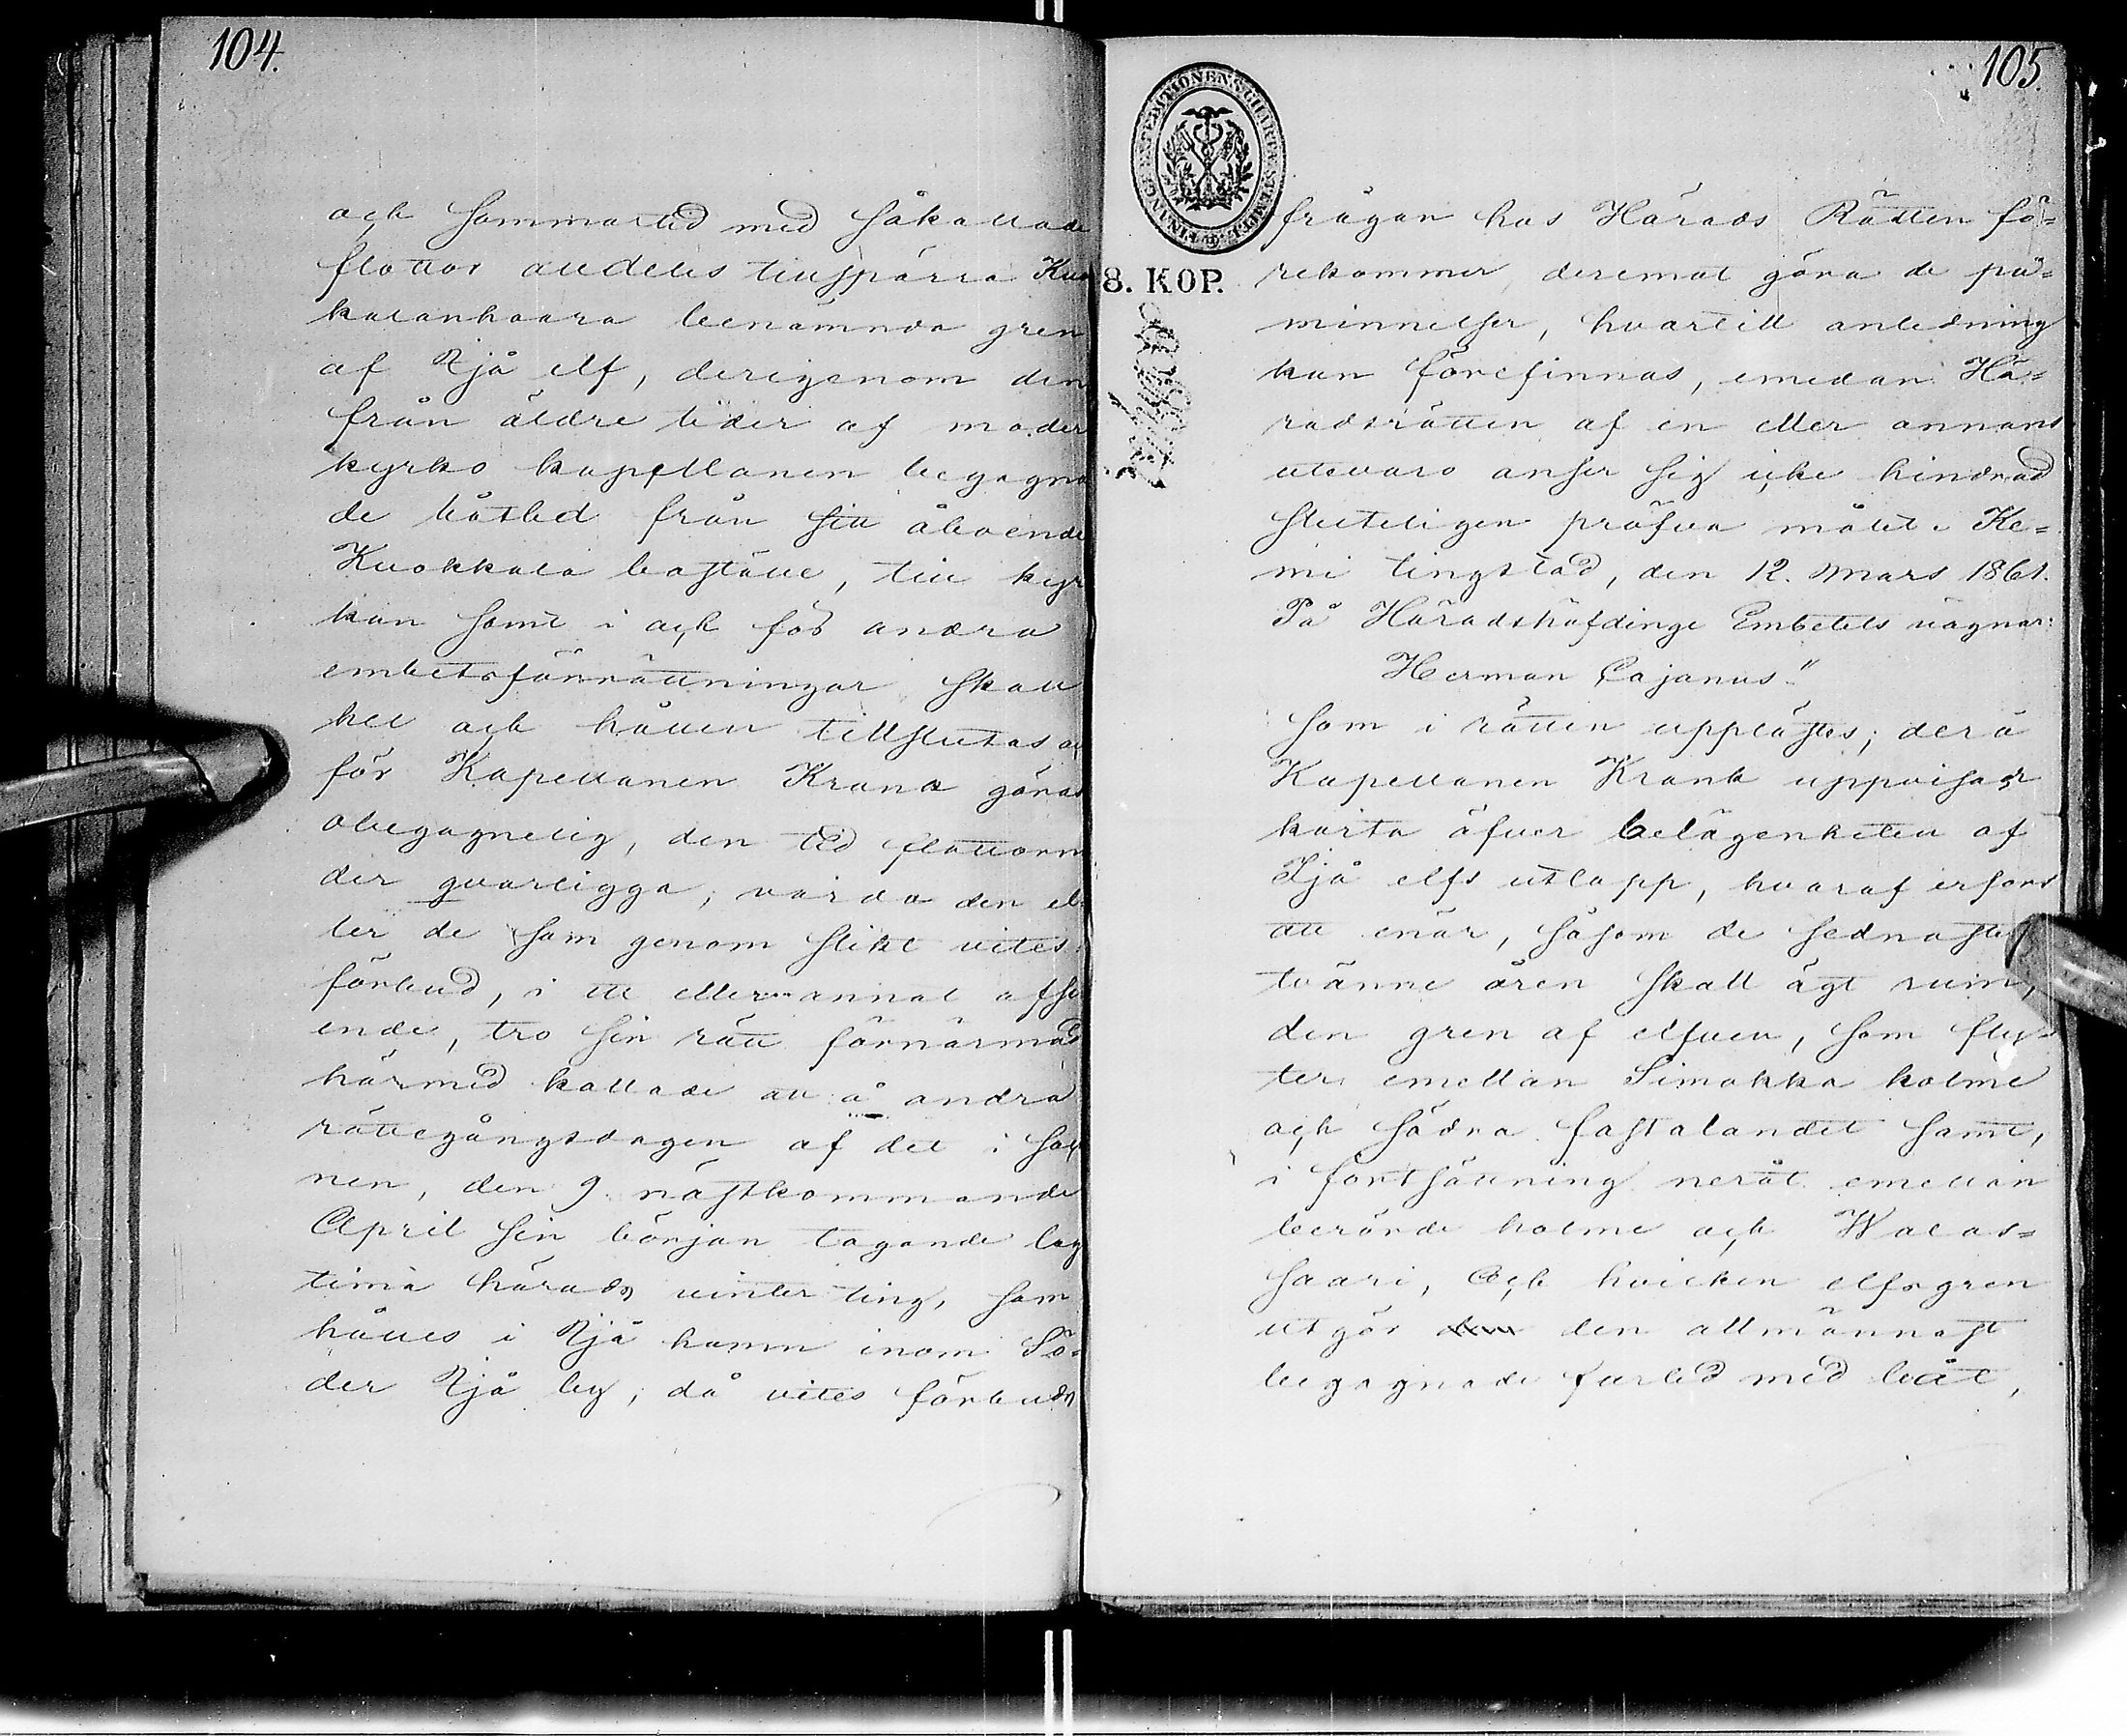 104.
och sommartid med såkallade
flottor alldeles tillspärra Kuo
kalanhaara benämnda gren
af Ijå elf, derigenom den
från äldre tider af moder
kyrko kapellanen begagna
de båtled från sitt åboende
Kuokkala boställe, till kyr
kan samt i och för andra
embetsförrättningar skall
hel och hållen tillslutas o
för Kapellanen Krank göras
obegagnelig, den tid flottorne
der qvarligga; varda den el
ler de som genom slikt vites
förbud, i ett eller annat afse
ende, tro sin rätt förnärmad
härmed kallade att å andra
rättegångsdagen af det i sock
nen, den 9 nästkommande
April sin början tagande lag
tima härads vinter ting, som
hålles i Ijå hamn inom Sö-
der Ijå by, då vites förbuds
105.
FINANCE EXPEDITIONENS CHARTÆ STEMPEL
8. KOP.
frågan hos Härads Rätten fö=
rekommer, deremot göra de på=
minnelser, hvartill anledning
kan förefinnas, emedan Hä=
radsrätten af en eller annans
utevaro anser sig icke hindrad
sluteligen pröfva målet. Ke=
mi tingstad, den 12. Mars 1861.
På Häradshöfdinge Embetets vägnar:
Herman Cajanus."
som i rätten upplästes; der å
Kapellanen Krank uppvisar
karta öfver belägenheten af
Ijå elfs utlopp, hvaraf erfors
att enär, såsom de sednaste
tvänne åren skall ägt rum,
den gren af elfven, som fly=
ter emellan Simokka holme
och södra fastalandet samt,
i fortsättning neråt emellan
berörde holme och Walas=
saari, och hvilken elfsgren
utgör den allmännast
begagnade farled med båt,